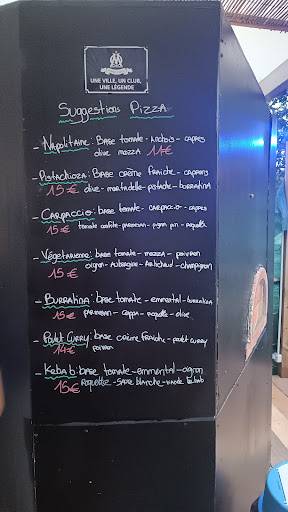 UNE VILLE, UN CLUB,
UNE LÉGENDE
Suggestions Pizza
- Napolitaine: Base tomate - anchois - capres
olive mozza 14€
- Pistachioza: Base crème fraîche - capporis
15€ olive - mortadelle - pistache - burratina
- Carpaccio: base tomate - carpaccio - capres
15€ tomate confite - parmesan - pignon pin - roquette
- Végétarienne: base tomate - mozza - poivron
15€ oignon - aubergine - artichaud - champignon
- Burratina: base tomate - emmental - burratina
15€ parmesan - coppa - roquette - olive
- Poulet Curry: base crème fraîche - poulet curry
14€ poivron
- Kebab: base tomate - emmental - oignon
15€ Roquette - sauce blanche - viande kebab